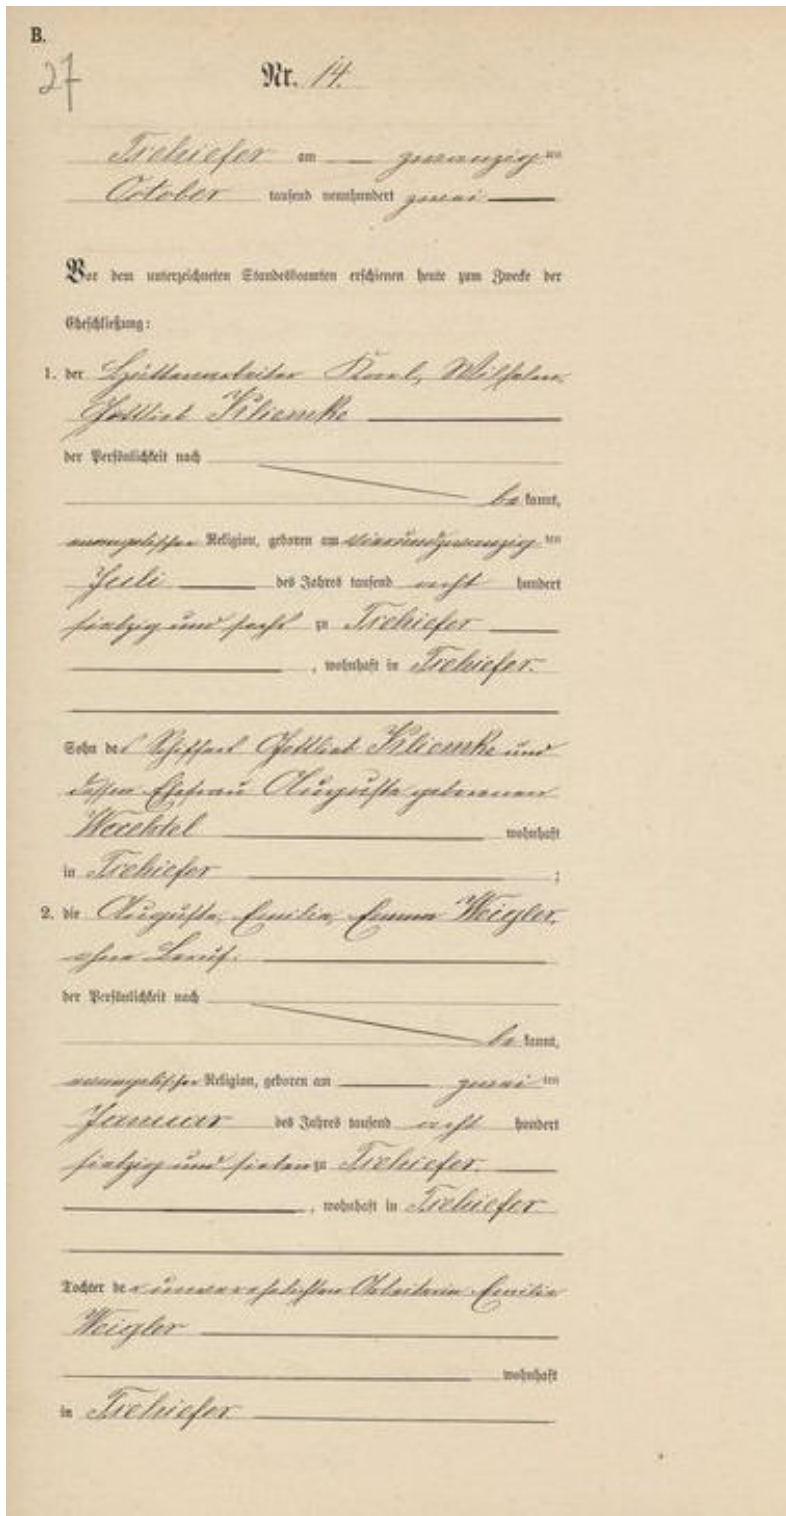 B.
27
Nr. 14.
Tschiefer am zwanzig ten
October tausend neunhundert zwei
Vor dem unterzeichneten Standesbeamten erschienen heute zum Zwecke der
Eheschließung:
1. der Hüttenarbeiter Karl, Wilhelm,
Gottlieb Kliemke
der Persönlichkeit nach
be kannt,
evangelischer Religion, geboren am vierundzwanzig ten
Juli des Jahres tausend acht hundert
siebzig und sechs zu Tschiefer
, wohnhaft in Tschiefer.
Sohn des Schiffers Gottlieb Kliemke und
dessen Ehefrau Auguste geborenen
wohnhaft
in Tschiefer ;
2. die Auguste, Emilie, Emma Weigler,
ohne Beruf.
der Persönlichkeit nach
be kannt,
evangelischer Religion, geboren am zwei ten
Januar des Jahres tausend acht hundert
siebzig und sieben zu Tschiefer.
, wohnhaft in Tschiefer
Tochter der unverehelichten Arbeiterin Emilie
Weigler
wohnhaft
in Tschiefer